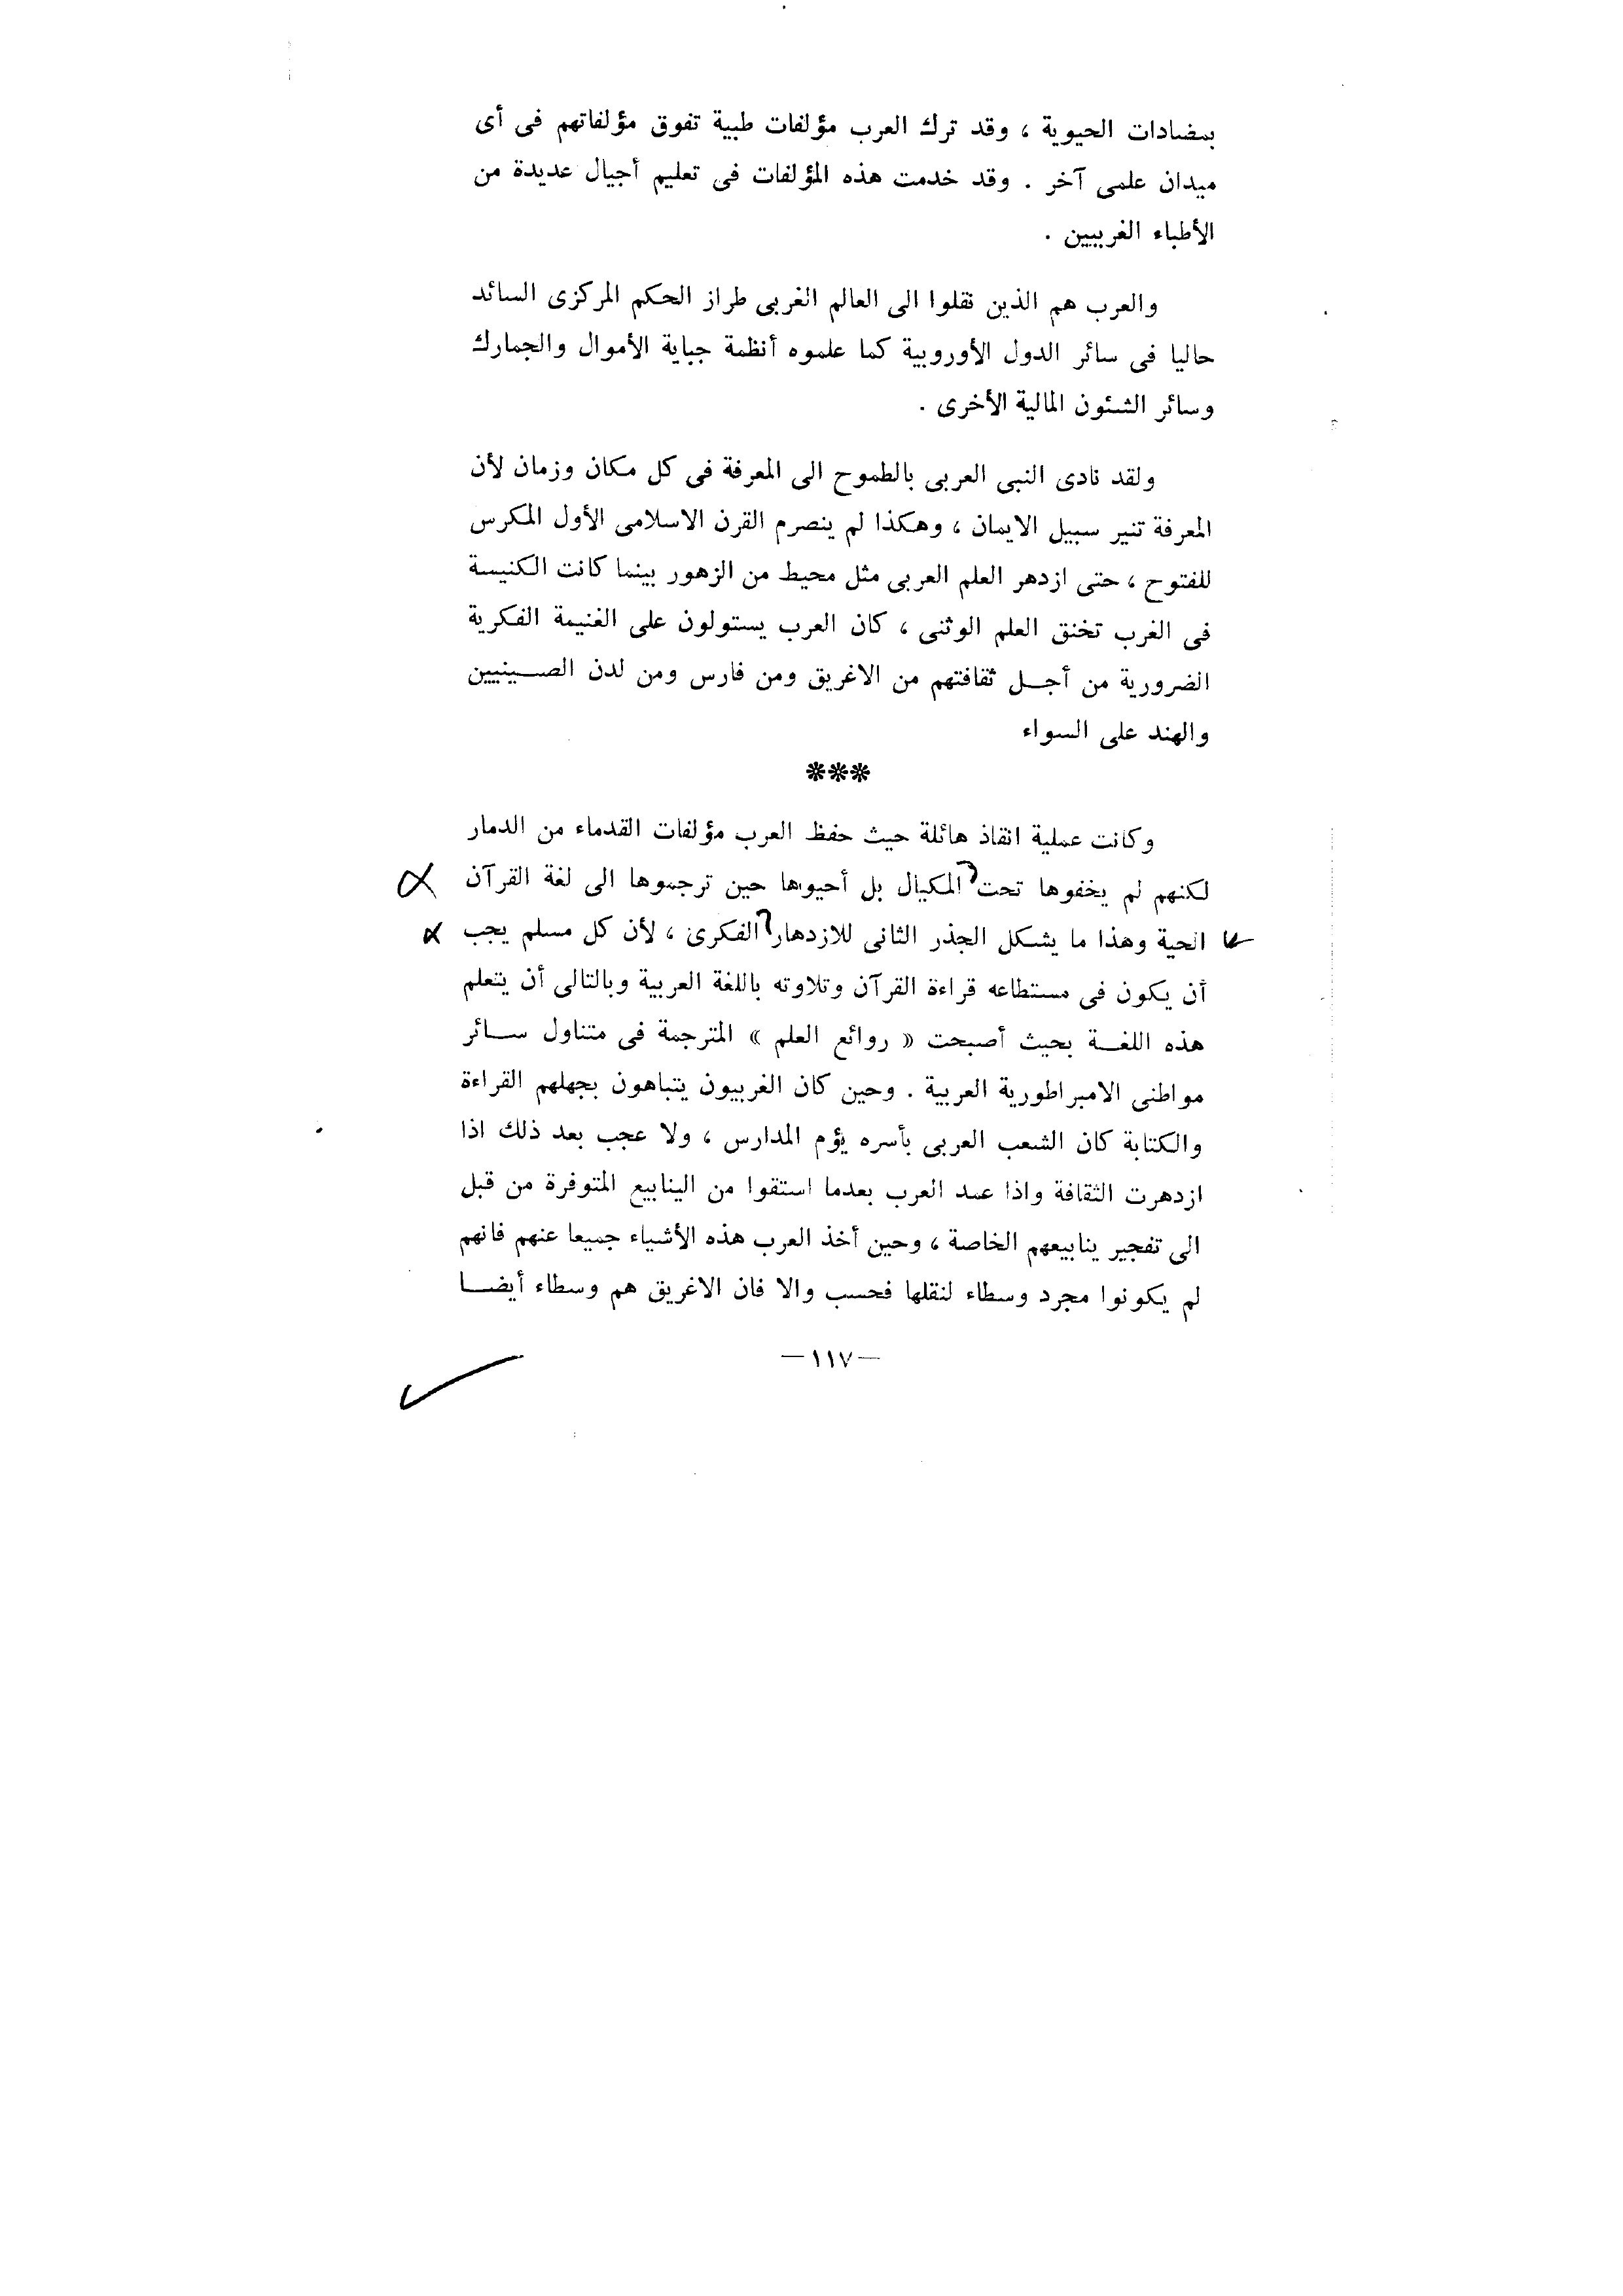 بمضادات الحيوية ، وقد ترك العرب مؤلفات طبية تفوق مؤلفاتهم فى أى
ميدان علمى آخر . وقد خدمت هذه المؤلفات فى تعليم أجيال عديدة من
الأطباء الغربيين .
والعرب هم الذين نقلوا الى العالم الغربى طراز الحكم المركزى السائد
حاليا فى سائر الدول الأوروبية كما علموه أنظمة جباية الأموال والجمارك
وسائر الشئون المالية الأخرى .
ولقد نادى النبى العربى بالطموح الى المعرفة فى كل مكان وزمان لأن
المعرفة تنير سبيل الايمان ، وهكذا لم ينصرم القرن الاسلامى الأول المكرس
للفتوح ، حتى ازدهر العلم العربى مثل محيط من الزهور بينما كانت الكنيسة
فى الغرب تخنق العلم الوثنى ، كان العرب يستولون على الغنيمة الفكرية
الضرورية من أجــل ثقافتهم من الاغريق ومن فارس ومن لدن الصــينيين
والهند على السواء
***
وكانت عملية انقاذ هائلة حيث حفظ العرب مؤلفات القدماء من الدمار
لكنهم لم يخفوها تحت المكيال بل أحيوها حين ترجموها الى لغة القرآن
الحية وهذا ما يشكل الجذر الثانى للازدهار الفكرى ، لأن كل مسلم يجب
أن يكون فى مستطاعه قراءة القرآن وتلاوته باللغة العربية وبالتالى أن يتعلم
هذه اللغــة بحيث أصبحت « روائع العلم » المترجمة فى متناول ســائر
مواطنى الامبراطورية العربية . وحين كان الغربيون يتباهون بجهلهم القراءة
والكتابة كان الشعب العربى بأسره يؤم المدارس ، ولا عجب بعد ذلك اذا
ازدهرت الثقافة واذا عمد العرب بعدما استقوا من الينابيع المتوفرة من قبل
الى تفجير ينابيعهم الخاصة ، وحين أخذ العرب هذه الأشياء جميعا عنهم فانهم
لم يكونوا مجرد وسطاء لنقلها فحسب والا فان الاغريق هم وسطاء أيضــا
—١١٧—